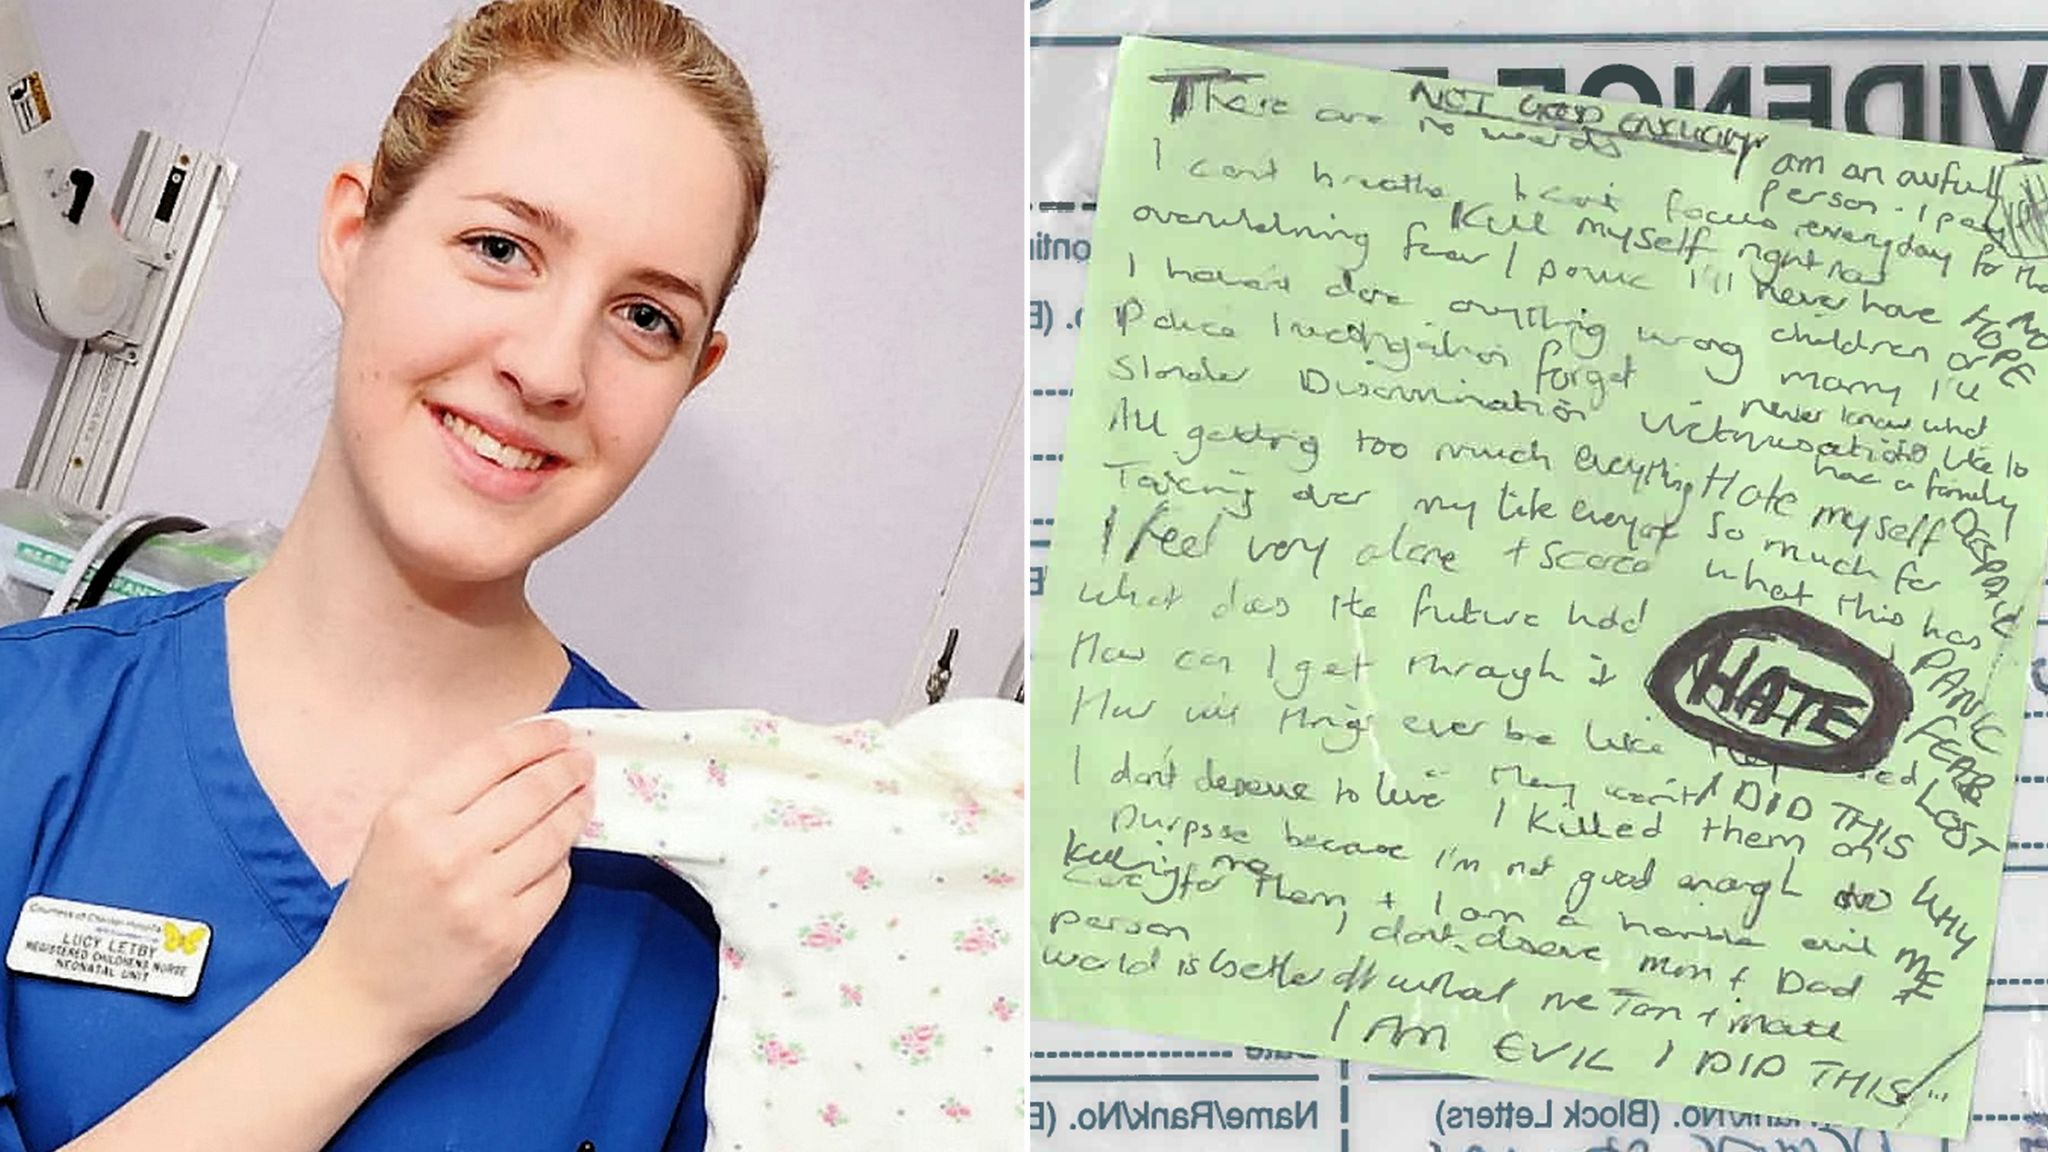 Countess of Chester Hospital
LUCY LETBY
REGISTERED CHILDRENS NURSE
NEONATAL UNIT
EVIDENCE
There are no words
NOT GOOD ENOUGH
I can't breathe I can't focus
overwhelming fear / panic
I haven't done anything wrong
Police investigation forget
Slander Discrimination Victimisation
All getting too much everything
Taking over my life everyone
I feel very alone + scared
What does the future hold
How can I get through it
How will things ever be like
HATE
I don't deserve to live They won't
I DID THIS
I killed them on
purpose because I'm not good enough to
care for them + I am a horrible evil
person I don't deserve Mum + Dad
world is better off without me Tom + Matt
I AM EVIL I DID THIS
am an awful
person - I pay
everyday for that
Kill myself right now
I'll never have
children or
marry I'll
never know what
it's like to
have a family
NO
HOPE
Hate myself
so much for
what this has
DESPAIR
PANIC
FEAR
LOST
WHY
ME
killing me
Name/Rank/No.
Rank/No. (Block Letters)
Date